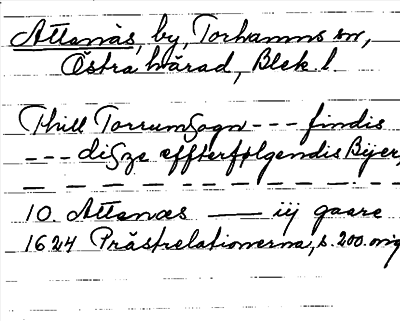 Attanäs, by, Torhamns sn,
Östra härad, Blek. l.
Thill Torrumsogn --- findis
--- disze effterfølgendis Bÿer,
— — — — — — — — —
10 Attanæs — iij gaare
1624 Prästrelationerna, s. 200. orig